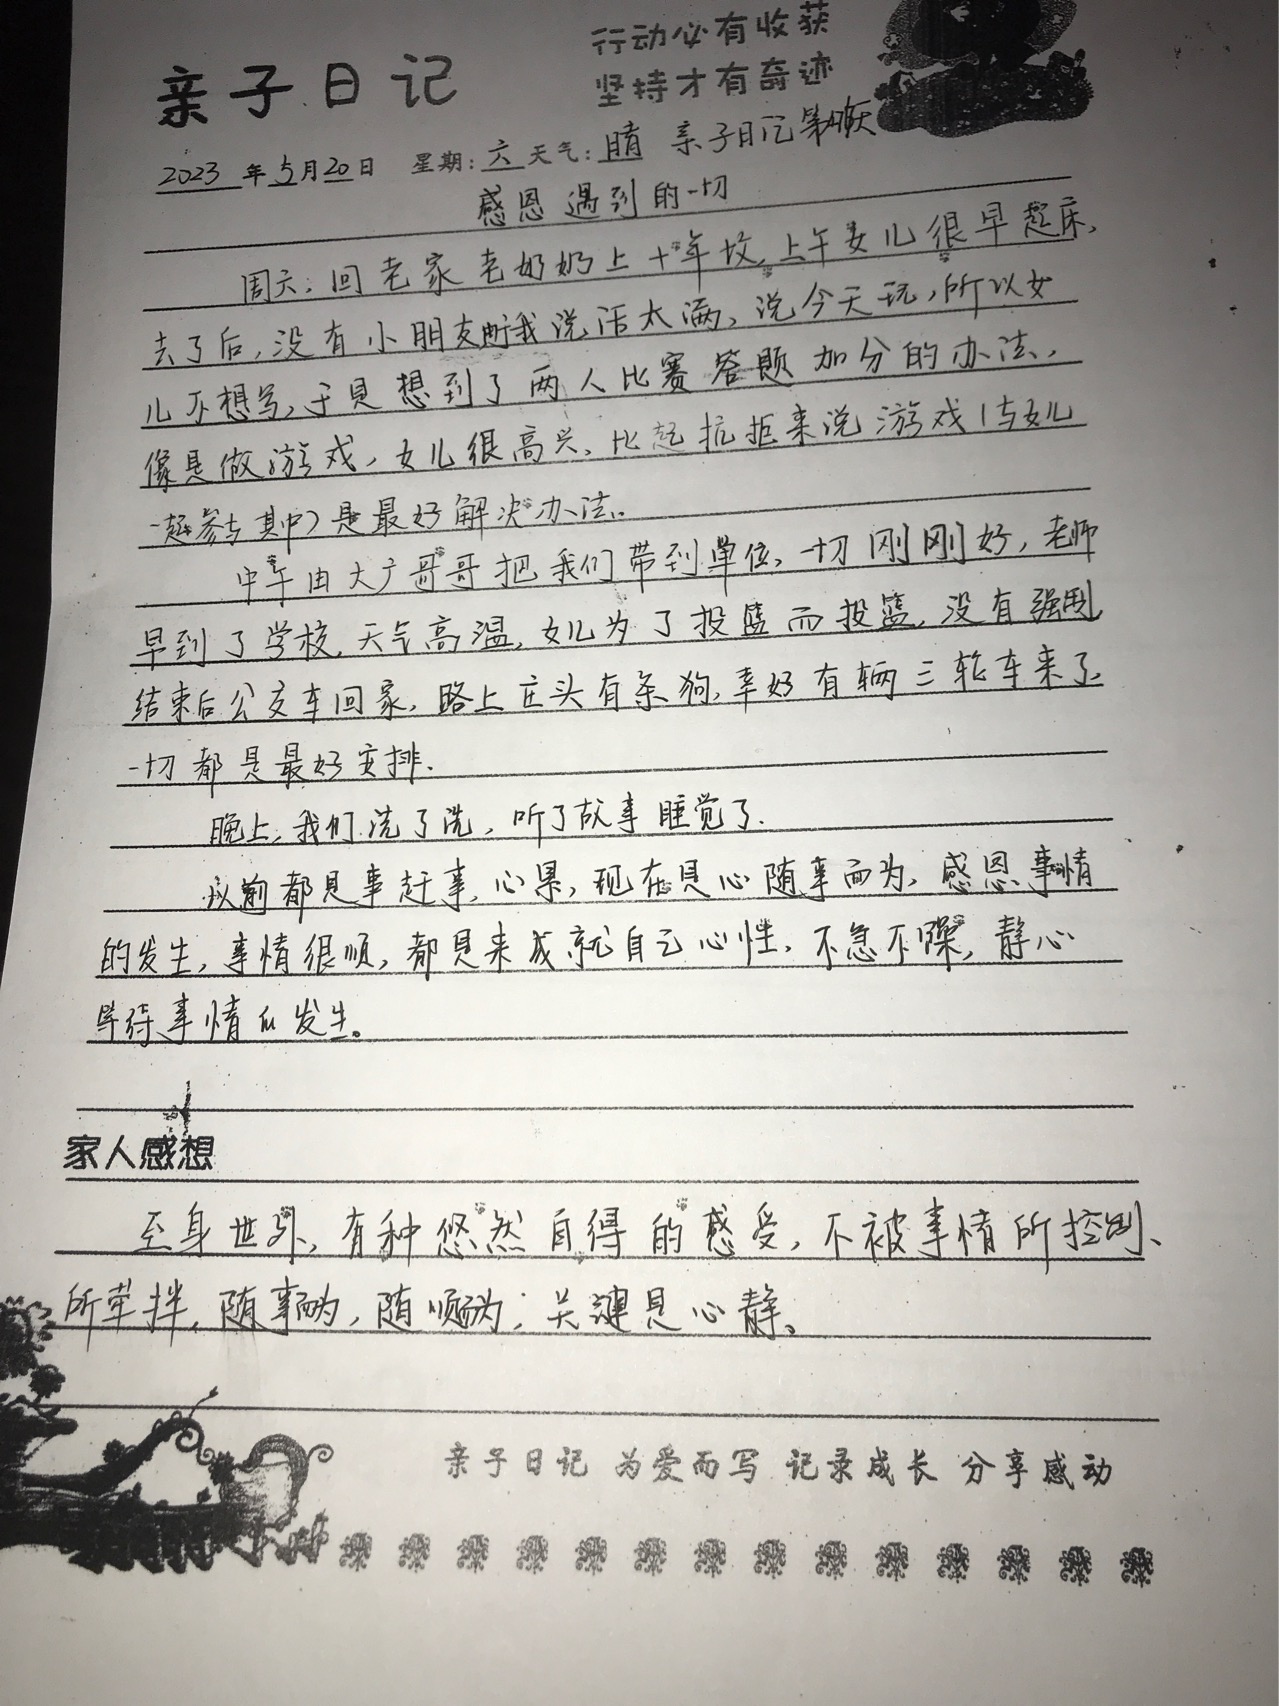 行动必有收获
亲子日记
坚持才有奇迹
2023年5月20日 星期:六 天气:晴 亲子日记第 天
感恩遇到的一切
周六:回老家老奶奶上十年坟,上午女儿很早起床,
去了后,没有小朋友 我说话太满,说今天玩,所以女
儿不想写,于是想到了两人比赛答题加分的办法,
像是做游戏,女儿很高兴,比起抗拒来说游戏(与女儿
一起参与其中)是最好解决办法。
中午由大广哥哥把我们带到单位,一切刚刚好,老师
早到了学校,天气高温,女儿为了投篮而投篮,没有强制
结束后公交车回家,路上庄头有条狗,幸好有辆三轮车来了,
一切都是最好安排.
晚上,我们洗了洗,听了故事睡觉了.
以前都是事赶事,心累,现在是心随事而为,感恩事情
的发生,事情很顺,都是来成就自己心性,不急不躁,静心
等待事情的发生。
家人感想
至身世外,有种悠然自得的感受,不被事情所控制、
所牵拌,随事而为,随顺而为,关键是心静。
亲子日记 为爱而写 记录成长 分享感动